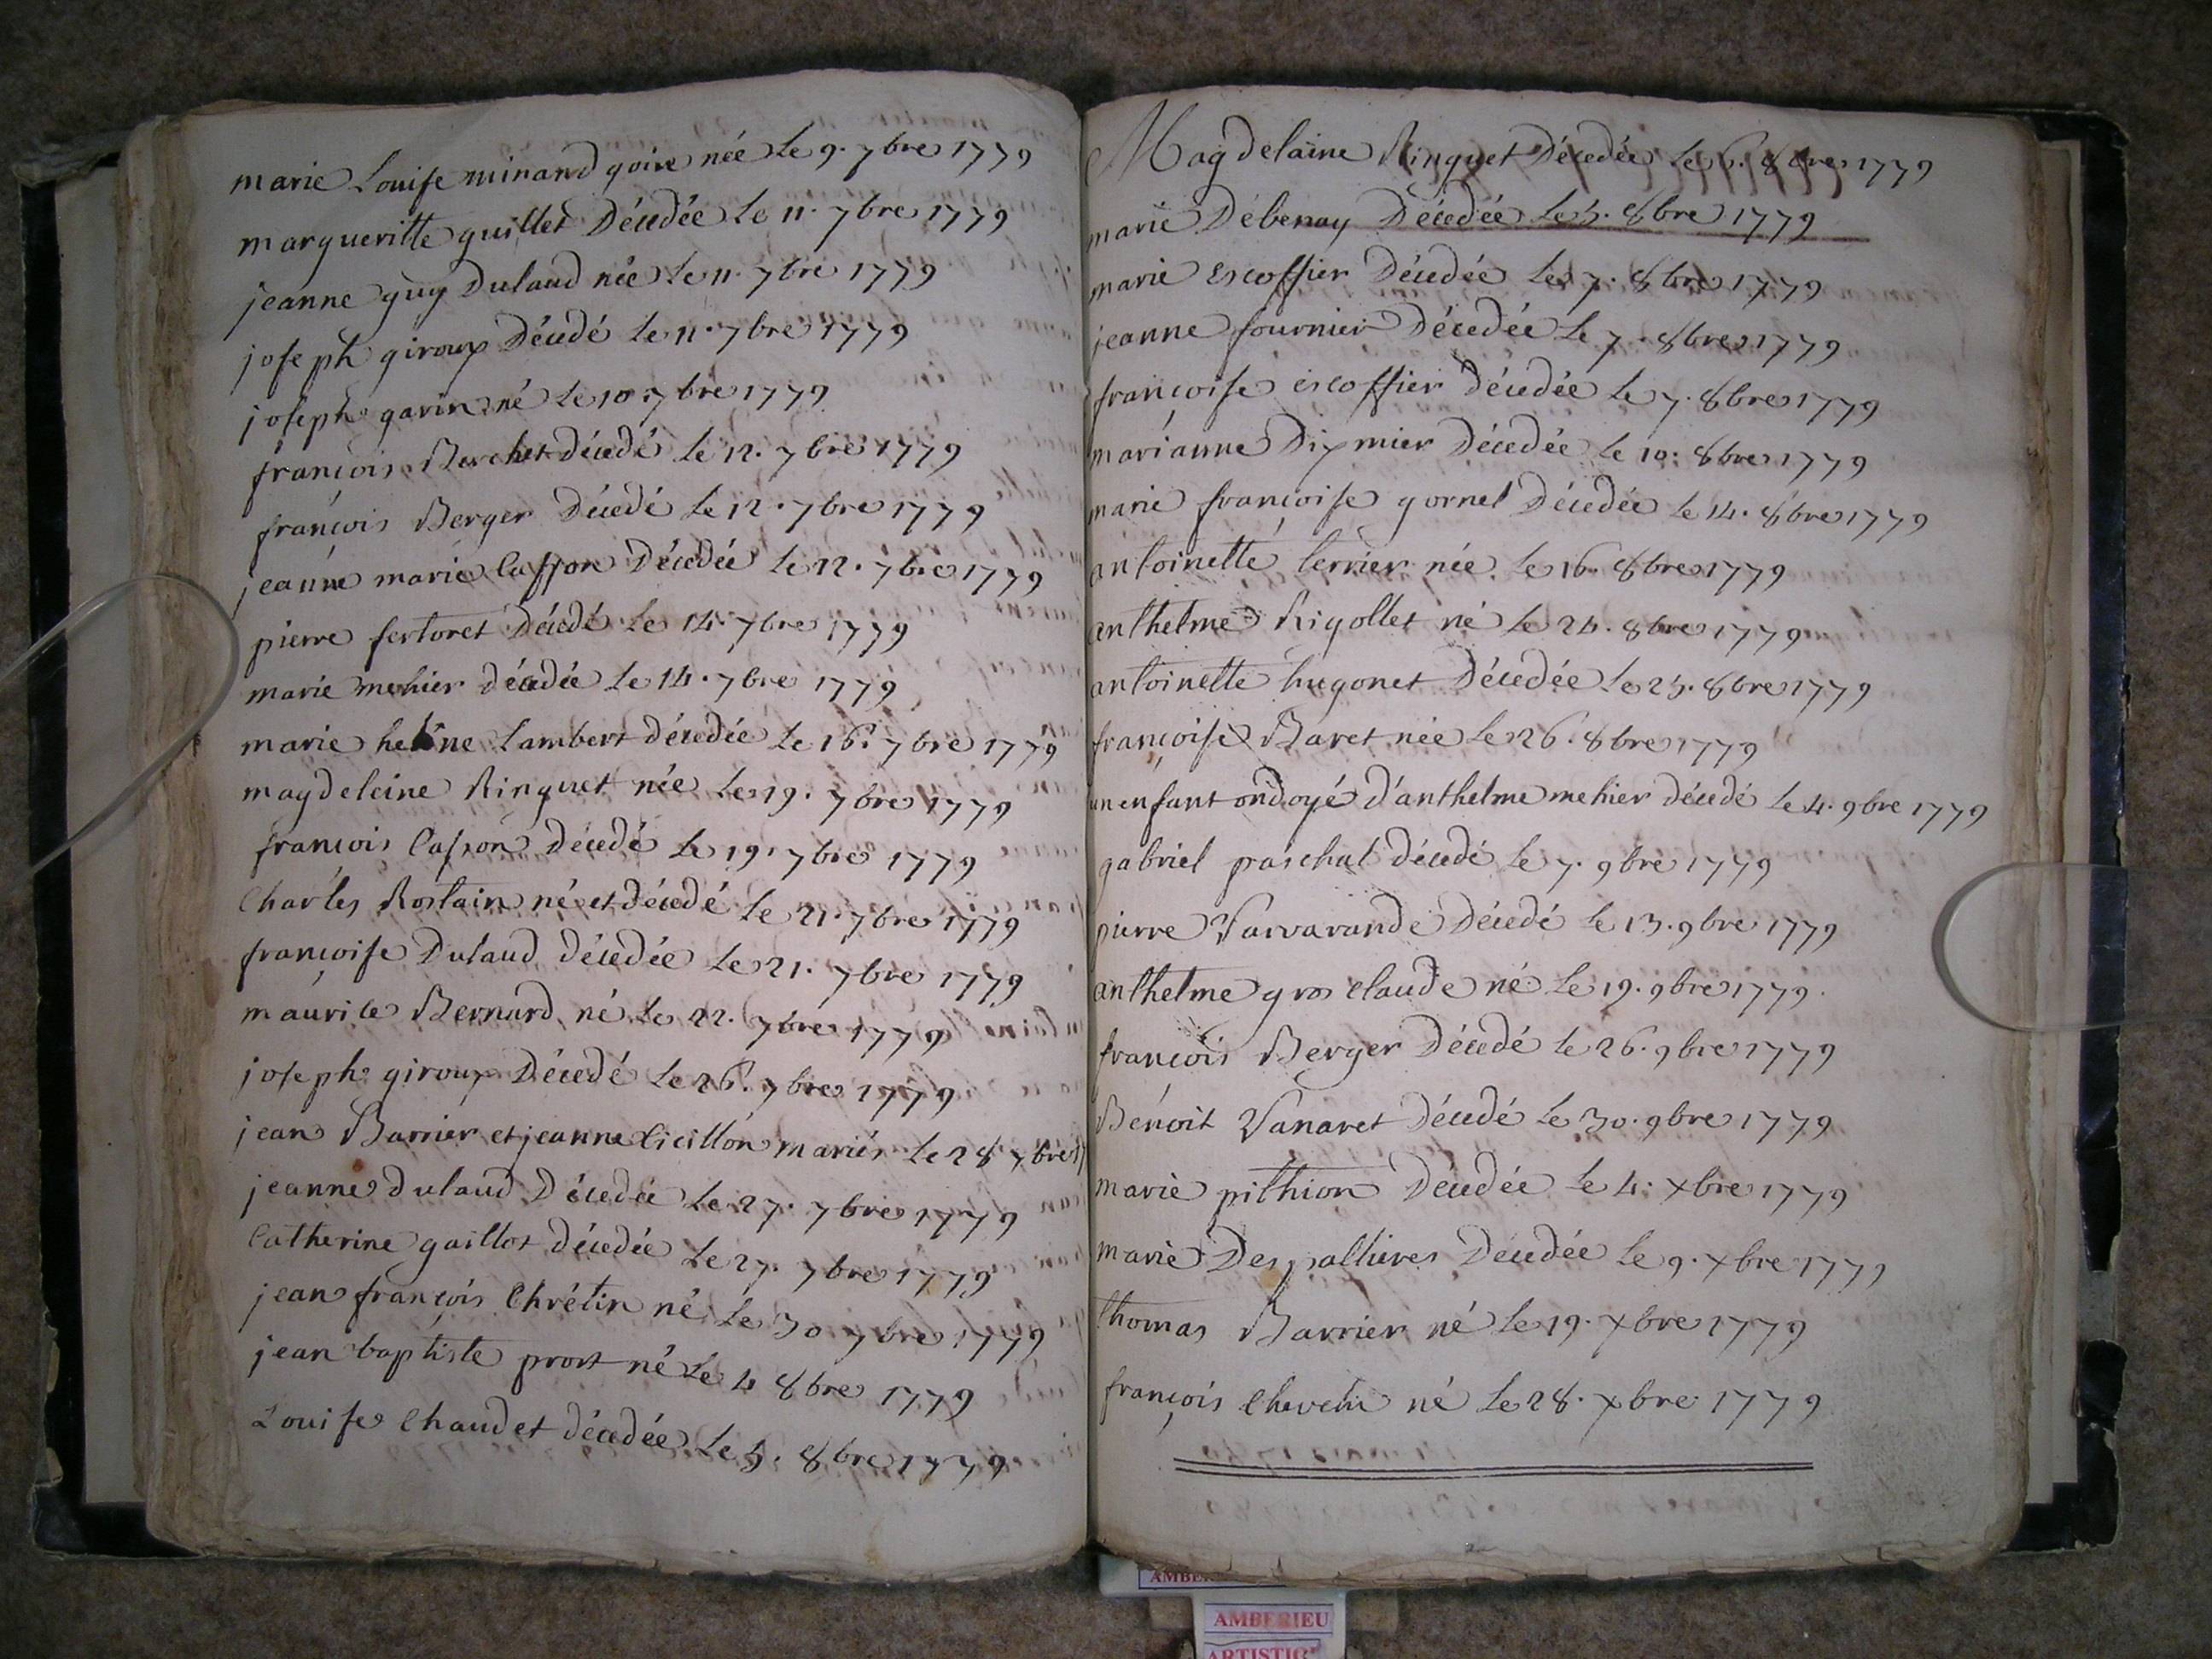 marie Louise minand goire née Le 9. 7bre 1779
margueritte guillet Décédée Le 11. 7bre 1779
jeanne guy Dulaud née Le 11. 7bre 1779
joseph giroux Décédé Le 11. 7bre 1779
joseph garin né Le 10. 7bre 1779
françois décédé Le 12. 7bre 1779
françois Berger Décédé Le 12. 7bre 1779
jeanne marie Casson Décédée Le 12. 7bre 1779
pierre fertoret Décédé Le 14. 7bre 1779
marie mehier décédée Le 14. 7bre 1779
marie helène Lambert décédée Le 16. 7bre 1779
magdeleine Ringuet née Le 19. 7bre 1779
françois Casson Décédé Le 19. 7bre 1779
Charles Rostain né et décédé Le 21. 7bre 1779
françoise Dulaud décédée Le 21. 7bre 1779
maurice Bernard né Le 22. 7bre 1779
joseph giroux Décédé Le 26. 7bre 1779
jean Barrier et jeanne mariés Le 28 7bre 17
jeanne dulaud Décédée Le 27. 7bre 1779
Catherine gaillot décédée Le 27. 7bre 1779
jean françois Chrétin né Le 30 7bre 1779
jean baptiste prost né Le 4 8bre 1779
Louise Chaudet décédée Le 5. 8bre 1779
Magdelaine Ringuet Décédée Le 6. 8bre 1779
marie Débenay Décédée Le 5. 8bre 1779
marie escoffier Décédée Le 7. 8bre 1779
jeanne fournier Décédée Le 7. 8bre 1779
françoise escoffier décédée Le 7. 8bre 1779
marianne Dixmier Décédée Le 10. 8bre 1779
marie françoise gornet Décédée Le 14. 8bre 1779
antoinette terrier née Le 16. 8bre 1779
anthelme Rigollet né Le 24. 8bre 1779
antoinette hugonet Décédée Le 25. 8bre 1779
françoise Baret née Le 26. 8bre 1779
un enfant ondoyé d'anthelme mehier décédé Le 4. 9bre 1779
gabriel paschal décédé Le 7. 9bre 1779
pierre Varvarande Décédé Le 13. 9bre 1779
anthelme gros claude né Le 19. 9bre 1779.
françois Berger Décédé Le 26. 9bre 1779
Benoit Vanaret Décédé Le 30. 9bre 1779
marie pithion Décédée Le 4. xbre 1779
marie Despallieres Décédée Le 9. xbre 1779
thomas Barrier né Le 19. xbre 1779
françois né Le 28. xbre 1779
AMBERIEU